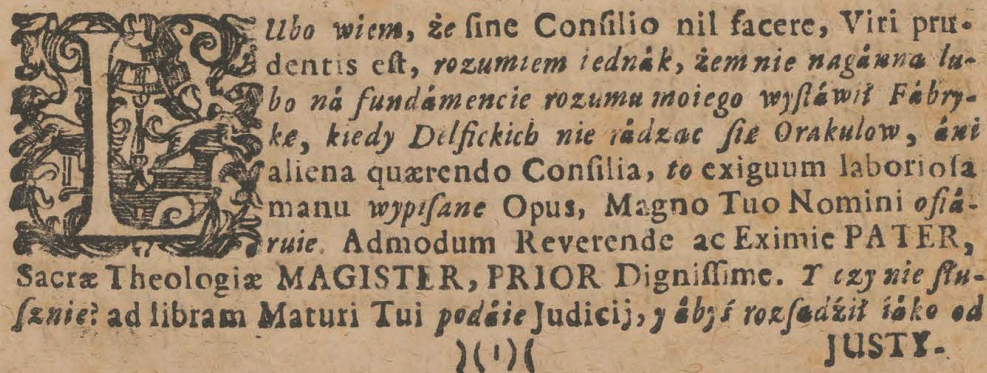 LUbo wiem, że ſine Conſilio nil facere, Viri pru-
dentis eſt, rozumiem iednák, żem nie nagánna lu-
bo ná fundámencie rozumu moiego wyſtáwił Fábry-
kę, kiedy Delfickich nie rádząc ſię Orakulow, áni
aliena quærendo Conſilia, to exiguum laborioſa
manu wypiſane Opus, Magno Tuo Nomini ofiá-
ruie. Admodum Reverende ac Eximie PATER,
Sacræ Theologiæ MAGISTER, PRIOR Digniſſime. Y czy nie ſłu-
ſznie? ad libram Maturi Tui podáie Judicij, y ábyś rozſądźił iáko od
)(1)(
JUSTY-